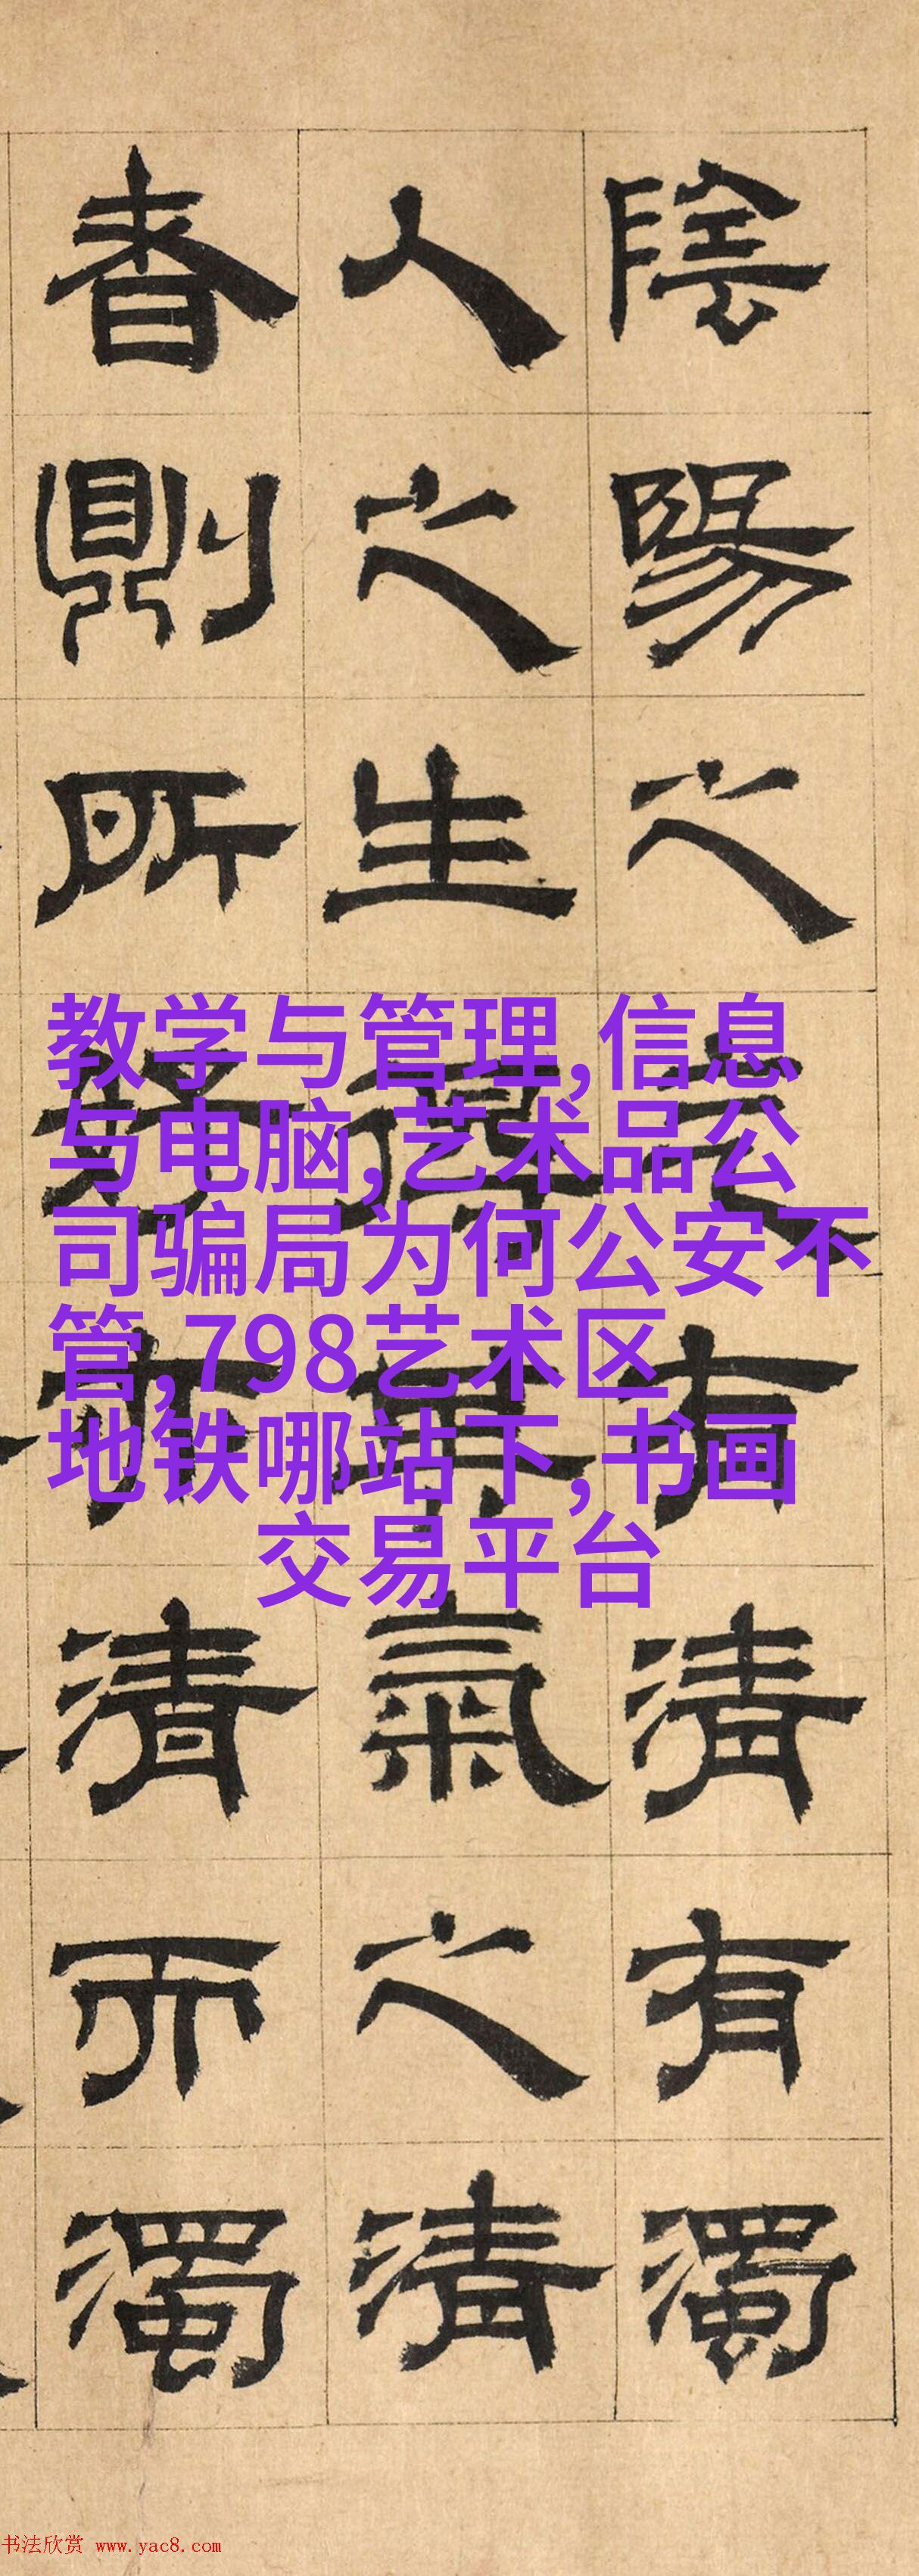 陰陽之气有清有濁
人之生得其氣之清
者則所好亦清而濁
教学与管理,信息
与电脑,艺术品公
司骗局为何公安不
管,798艺术区
地铁哪站下,书画
交易平台
书法欣赏 www.yac8.com